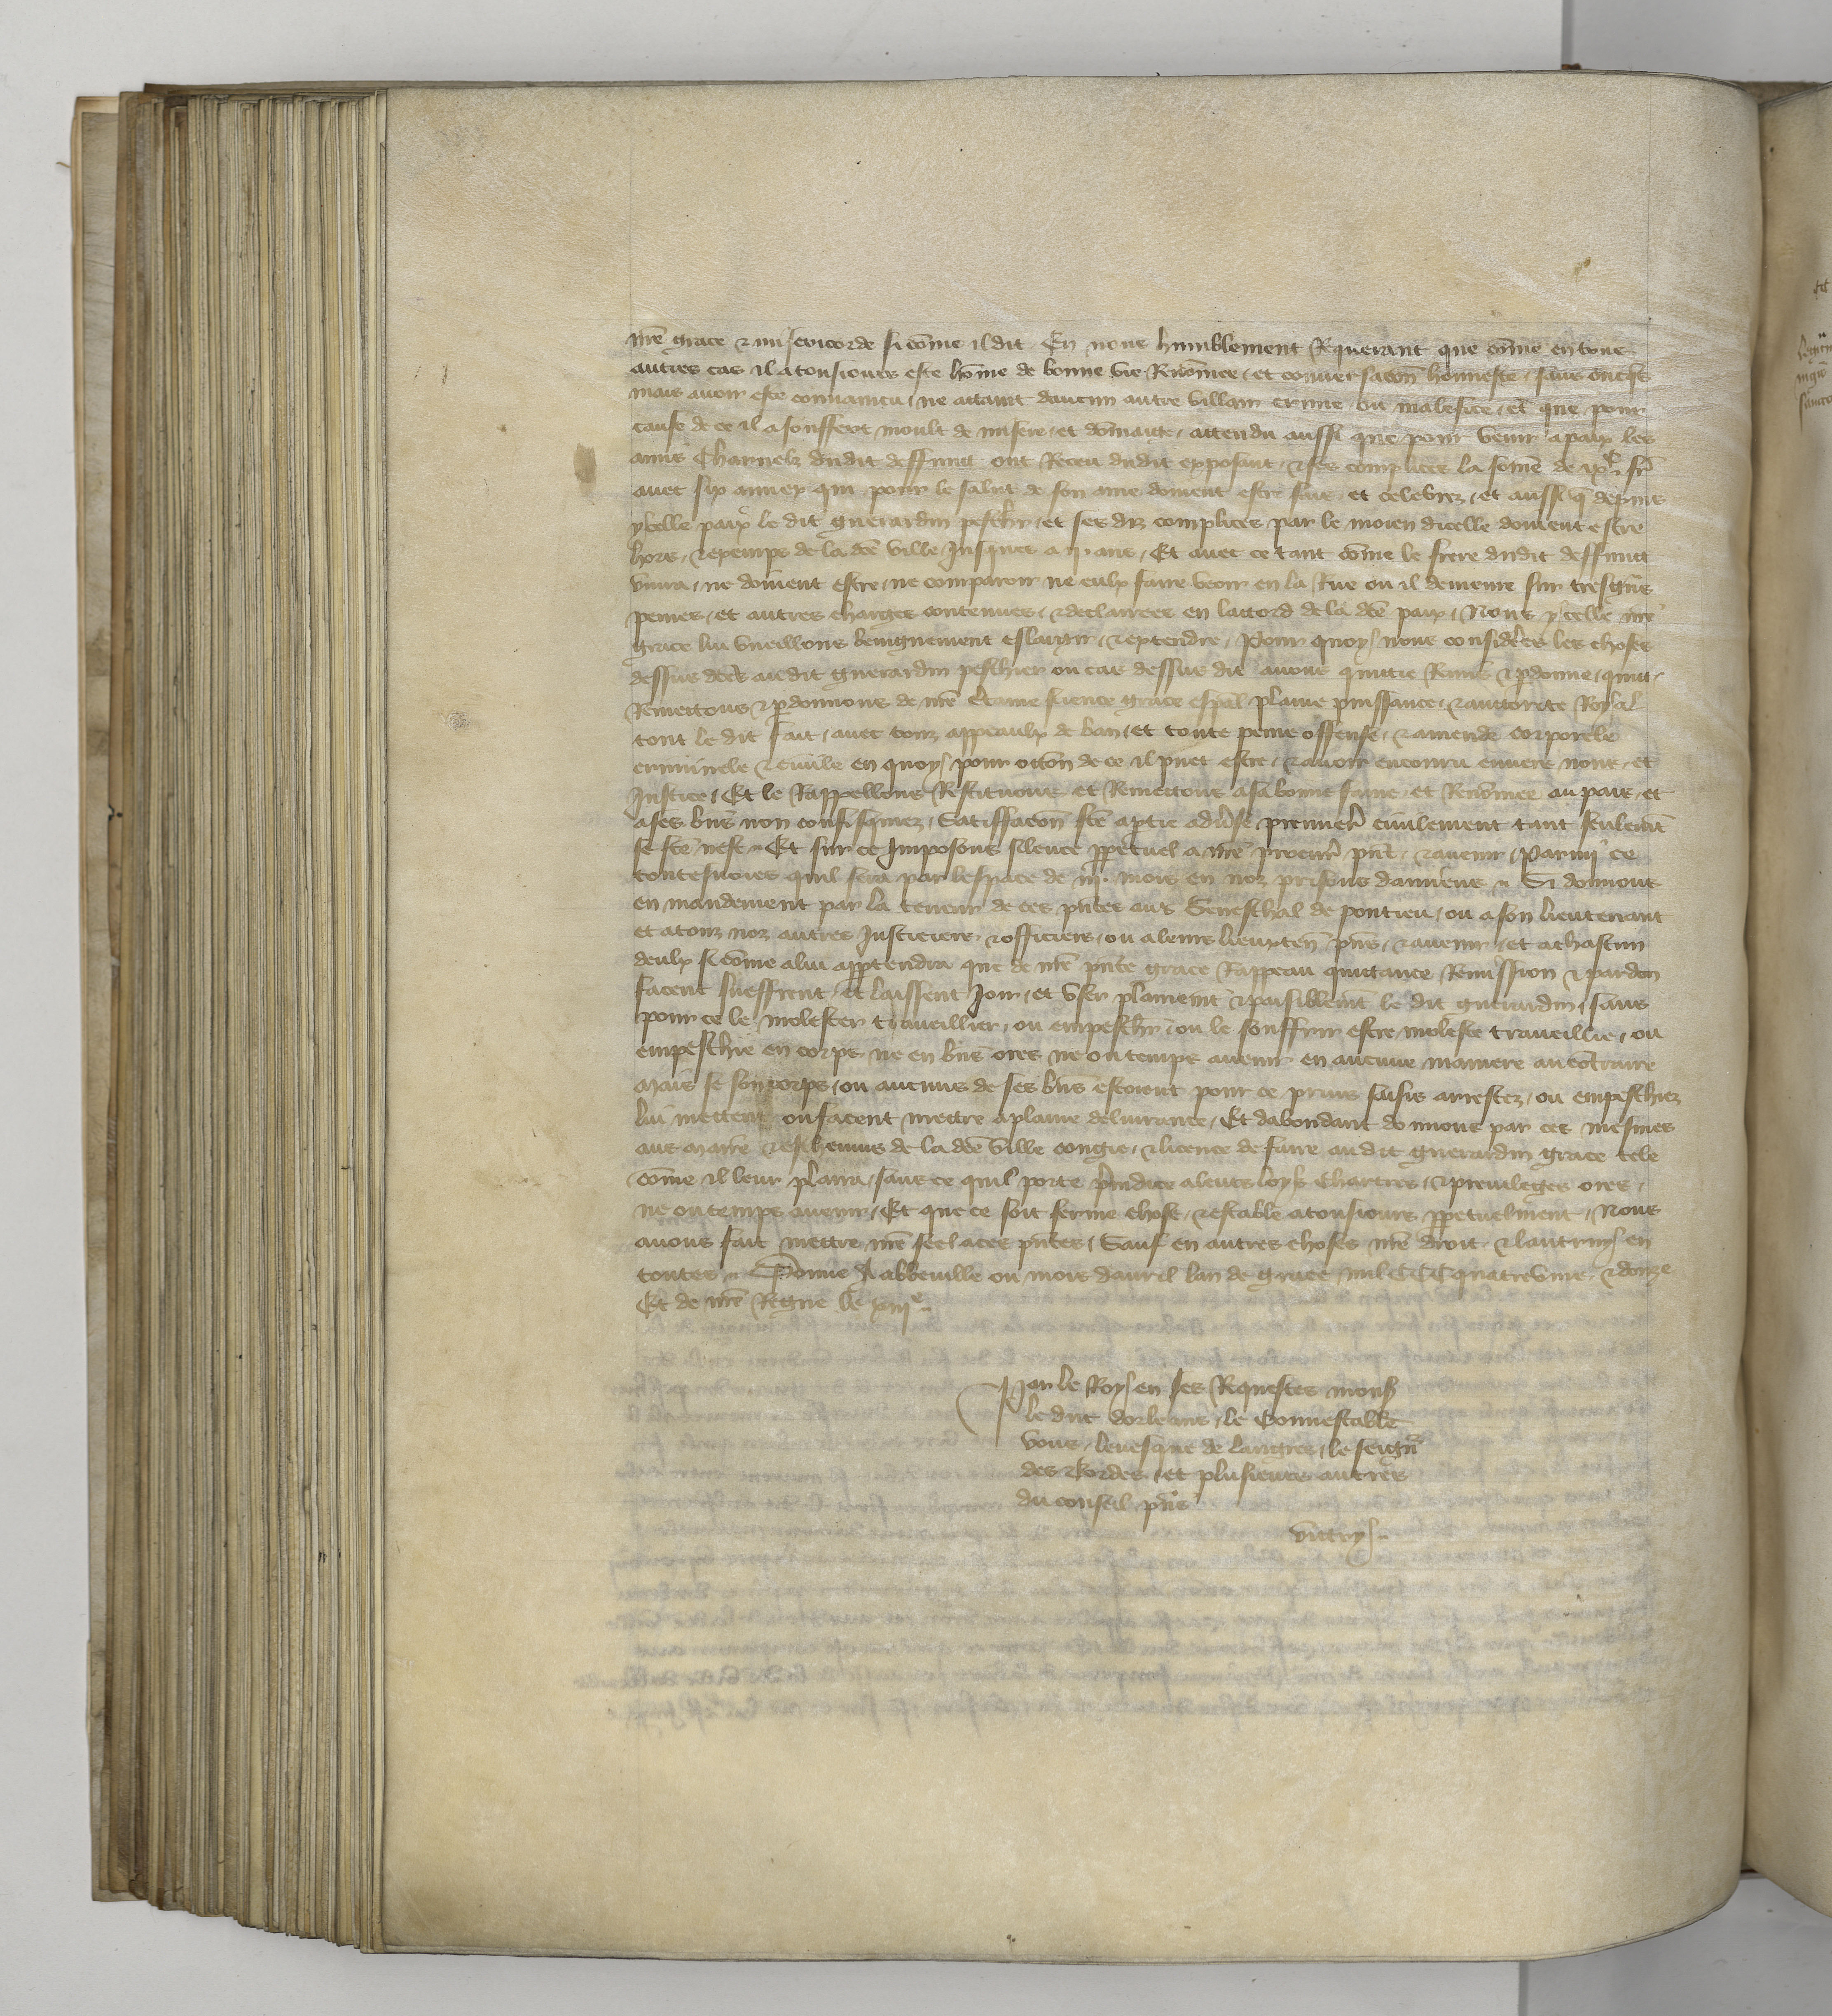 nr̃e grace & misericorde si cõme il dit En nous humblement Requerant que cõme en tous
autres cas il a tousiours este hõme de bonne vie Renõmee et conuersacõn honneste sans oncq̃s
mais auoir este conuaincu ne attaint daucun autre villain crime ou malefice et que pour
cause de ce il a souffert moult de misere et dõmaige attendu aussi que pour venir a paix les
amis Charnelz dudit deffunct ont Receu dudit exposant & ses complices la sõme de frã
auec six annex qui pour le salut de son ame doiuent estre fais et celebrez et aussi q̃ depuis
ycelle paix le dit guerardin peschier et ses diz complices par le moien dicelle doiuent estre
hors & exemps de la dcẽ ville Jusques a ij ans Et auec ce tant cõme le frere dudit deffunct
viura ne doiuent estre ne comparoir ne eulx faire veoir en la Rue ou il demeure sur tresgñs
peines et autres charges contenues & declairees en lacord de la dcẽ paix Nous ycelle nr̃e
grace lui vueillons benignement eslargir & extendre Pour quoy nous considerees les choses
dessus dcẽs audit guerardin peschier ou cas dessus dit auons quictie Remis & pdonne quict
Remettons & pdonnons de nr̃e Certaine science grace espãl plaine puissance & auctorite Royal
tout le dit fait auec tous appeaulx de ban et toute peine offense & amende corporele
criminele & ciuile en quoy pour occõn de ce il puet estre & auoir encouru enuers nous et
Justice Et le Rappellons Restituons et Remettons a sa bonne fame et Renõmee au pais et
a ses biñs non confisquiez Satisfacõn fcẽ a ptie aduerse premier̃ ciuilement tant seulemt̃
se fcẽ nest Et sur ce Imposons silence ppetuel a nr̃e procur̃ pñt & auenir Parmi ce
toutesuoies quil sera par lespace de iij mois en noz prisons damiens Si donnons
en mandement par la teneur de ces pñtes aus Seneschal de pontieu ou a son lieutenant
et a touz noz autres Justiciers & officiers ou a leurs lieuxten̄ pñs & auenir et a chascun
deulx si cõme a lui apptendra que de nr̃e pñte grace Rappeau quittance Remission & pardon
facent sueffrent et laissent Joir et vser plainemt̃ & paisiblemt̃ le dit guerardin sans
pour ce le molester traueillier ou empeschier ou le souffrir estre moleste traueillie ou
empeschie en corps ne en biñs ores ne ou temps auenir en aucune maniere au cõtraire
Mais se son corps ou aucuns de ses biñs estoient pour ce prins saisis arrestez ou empeschiez
lui mettent ou facent mettre a plaine deliurance Et dabondant donnons par ces mesmes
aus Maire & escheuins de la dcẽ ville congie & licence de faire audit guerardin grace tele
cõme il leur plaira sans ce quil porte preiudice a leurs loys Chartres & priuileges ores
ne ou temps auenir Et que ce soit ferme chose & estable a tousiours ppetuelment Nous
auons fait mettre nr̃e seel a ces pñtes Sauf en autres choses nr̃e droit & lautruy en
toutes Donne A abbeuille ou mois dauril lan de grace mil CCC quatrevins & douze
Et de nr̃e Regne le xiie
Par le Roy en ses Requestes mons
le duc dorleans le Connestable
vous leuesque de langres le seignr
des Bordes et plusieurs autres
du conseil pñs
vittry